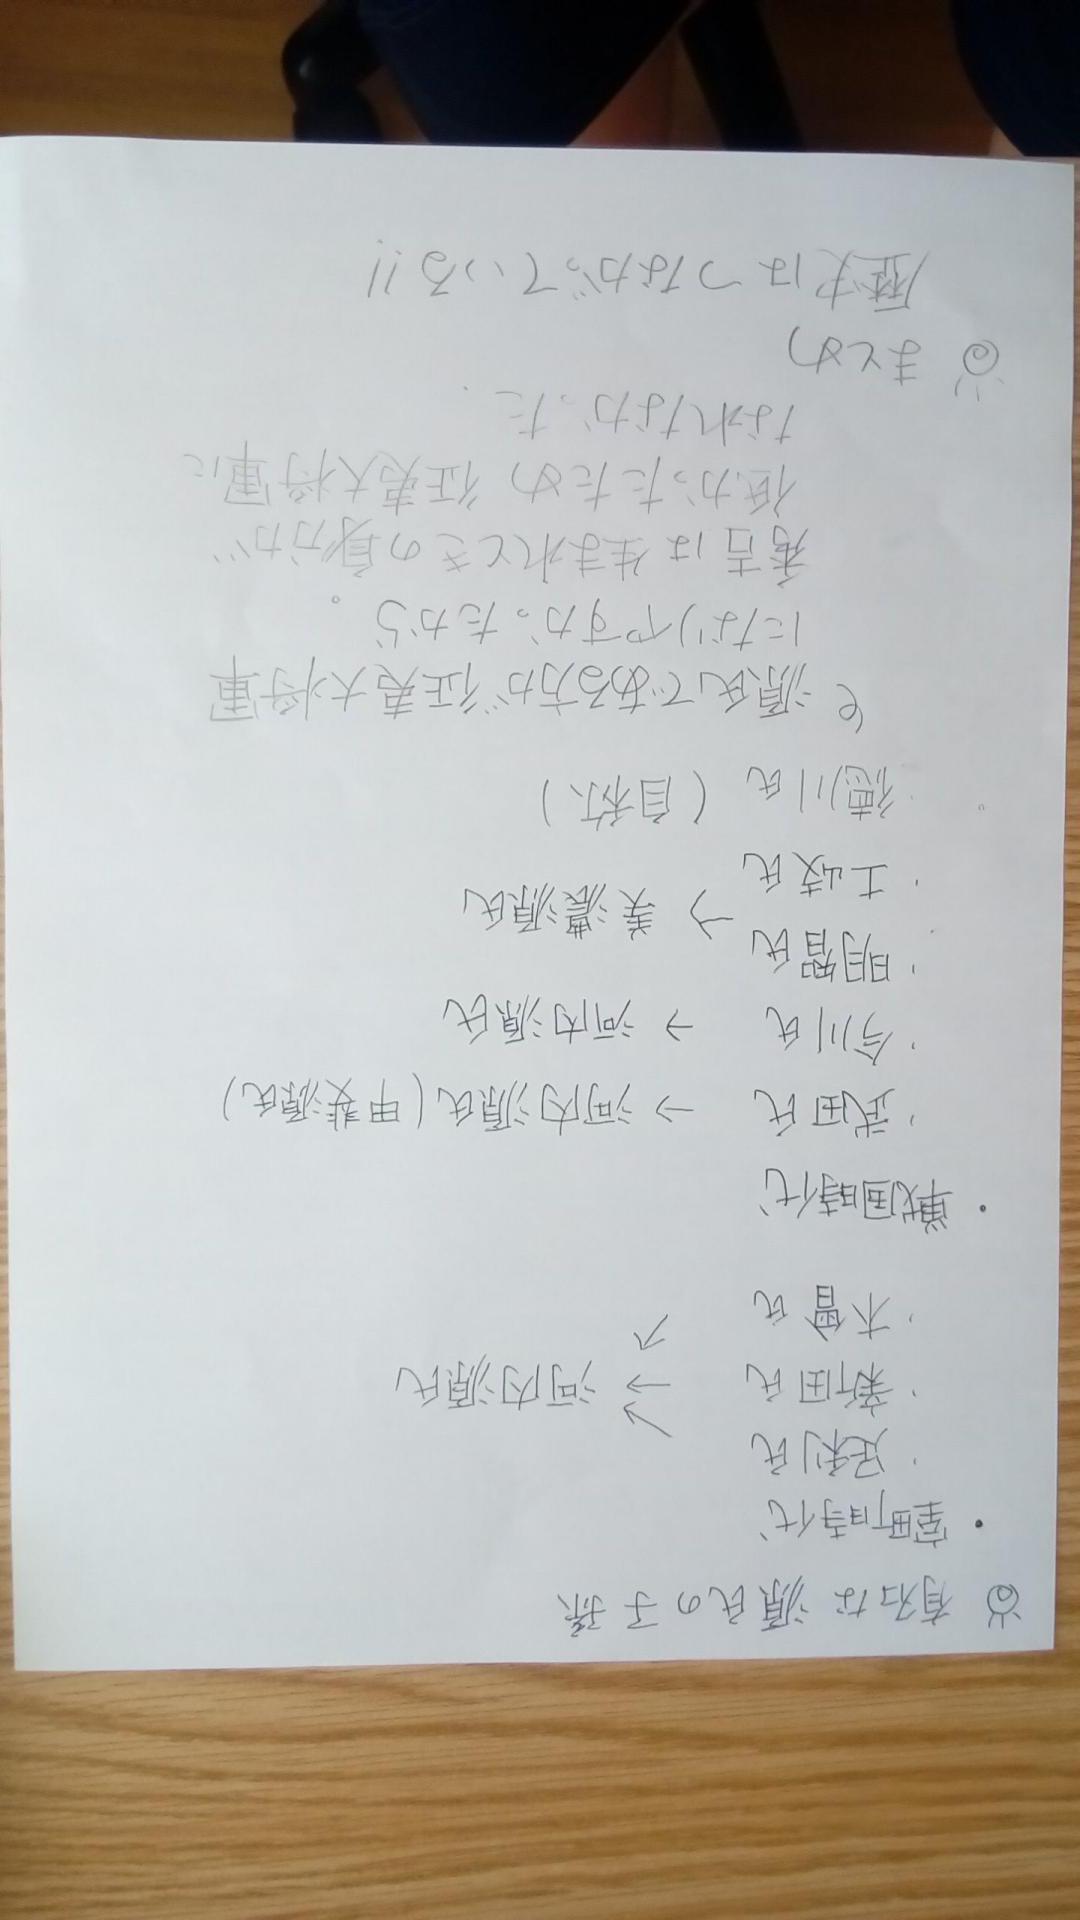 ◎ 有名な源氏の子孫
・室町時代
・足利氏
・新田氏 → 河内源氏
・木曽氏
・戦国時代
・武田氏 → 河内源氏(甲斐源氏)
・今川氏 → 河内源氏
・明智氏
・土岐氏 → 美濃源氏
・徳川氏 (自称)
源氏である方が征夷大将軍
になりやすかったから。
秀吉は生まれときの身分が
低かったため征夷大将軍に
なれなかった.
◎ まとめ
歴史はつながっている!!